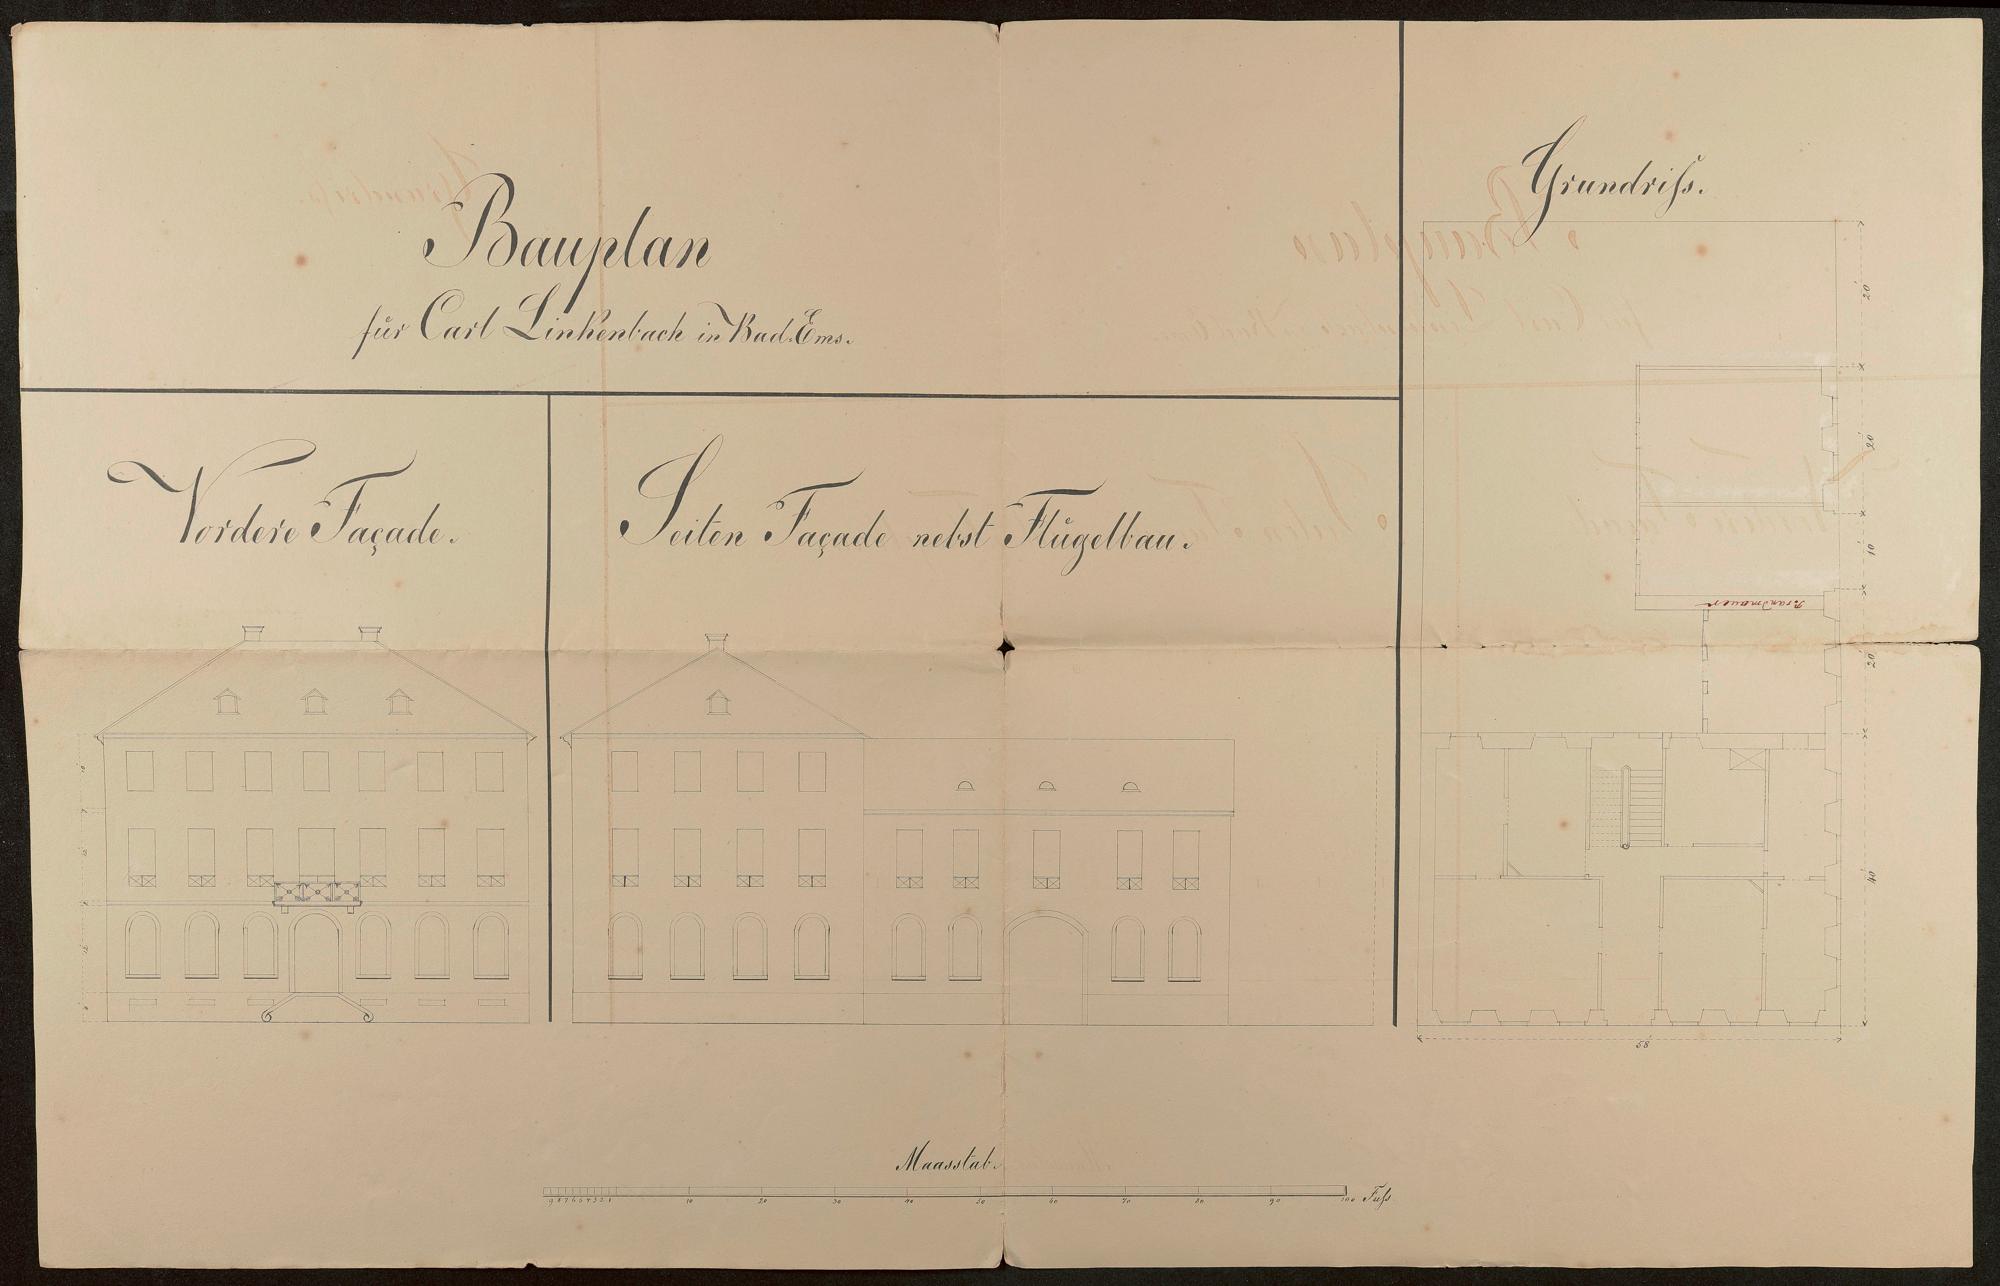 Bauplan
für Carl Linkenbach in Bad-Ems.
Vordere Façade.
Seiten Façade nebst Flügelbau.
Grundriſs.
20'
20'
10'
Brandmauer
20'
40'
58'
Maasstab.
9 8 7 6 5 4 3 2 1 10 20 30 40 50 60 70 80 90 100 Fuſs